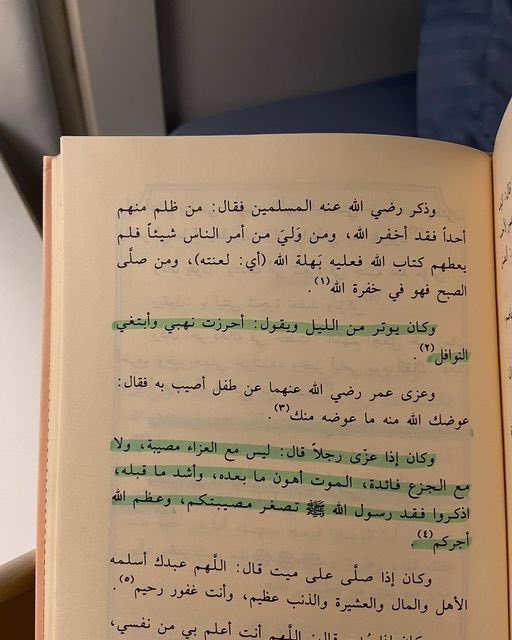 وذكر رضي الله عنه المسلمين فقال: من ظلم منهم
أحداً فقد أخفر الله، ومن وَليَ من أمر الناس شيئاً فلم
يعطهم كتاب الله فعليه بَهلة الله (أي: لعنته)، ومن صلَّى
الصبح فهو في خفرة الله(١).
وكان يوتر من الليل ويقول: أحرزت نهبي وأبتغي
النوافل(٢).
وعزى عمر رضي الله عنهما عن طفل أصيب به فقال:
عوضك الله منه ما عوضه منك(٣).
وكان إذا عزّى رجلاً قال: ليس مع العزاء مصيبة، ولا
مع الجزع فائدة، الموت أهون ما بعده، وأشد ما قبله،
اذكروا فقد رسول الله ﷺ تصغر مصيبتكم، وعظم الله
أجركم(٤).
وكان إذا صلَّى على ميت قال: اللَّهم عبدك أسلمه
الأهل والمال والعشيرة والذنب عظيم، وأنت غفور رحيم(٥).
قال: اللَّهم أنت أعلم بي من نفسي،